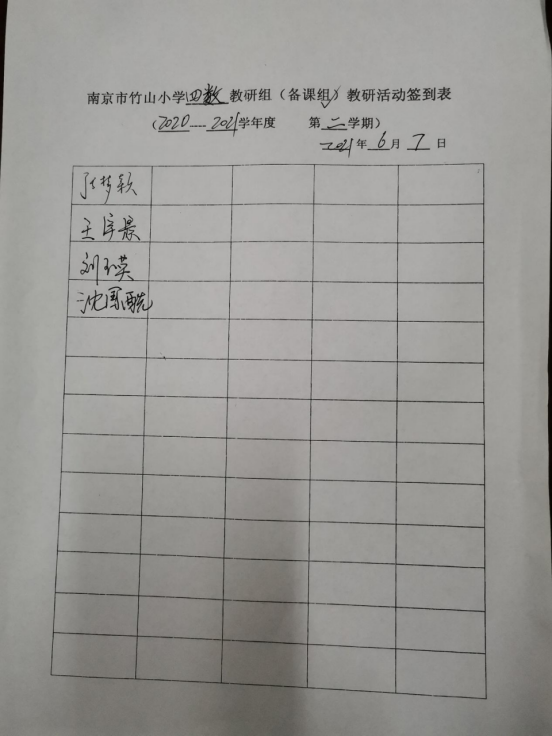 南京市竹山小学四数教研组（备课组）教研活动签到表
（2020——2021学年度 第二学期）
2021年6月7日
张梦颖
王宇景
刘玉英
沈国